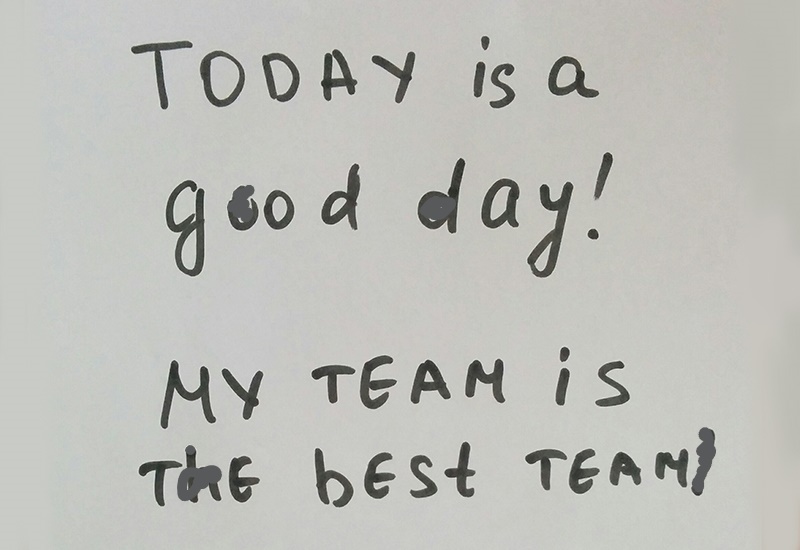 TODAY is a
good day!
MY TEAM is
THE bEST TEAM!